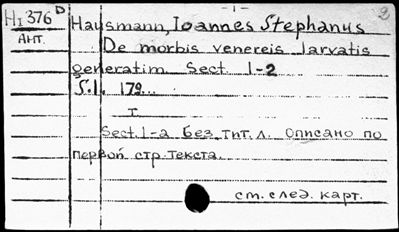 - 1 -
Hı 376 D
2
Hausmann, Ioannes Stephanus
Ант.
De morbis venereis larvatis
generatim. Sect. 1-2
S.l. 179...
т.
Sect. 1-a без тит. л. Описано по
первой стр. текста.
см. след. карт.